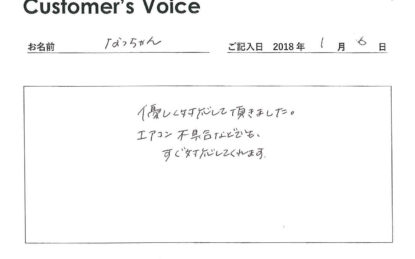 Customer's Voice
お名前 なっちゃん ご記入日 2018年 1月 6日
優しく対応して頂きました。
エアコン不具合などでも、
すぐ対応してくれます。